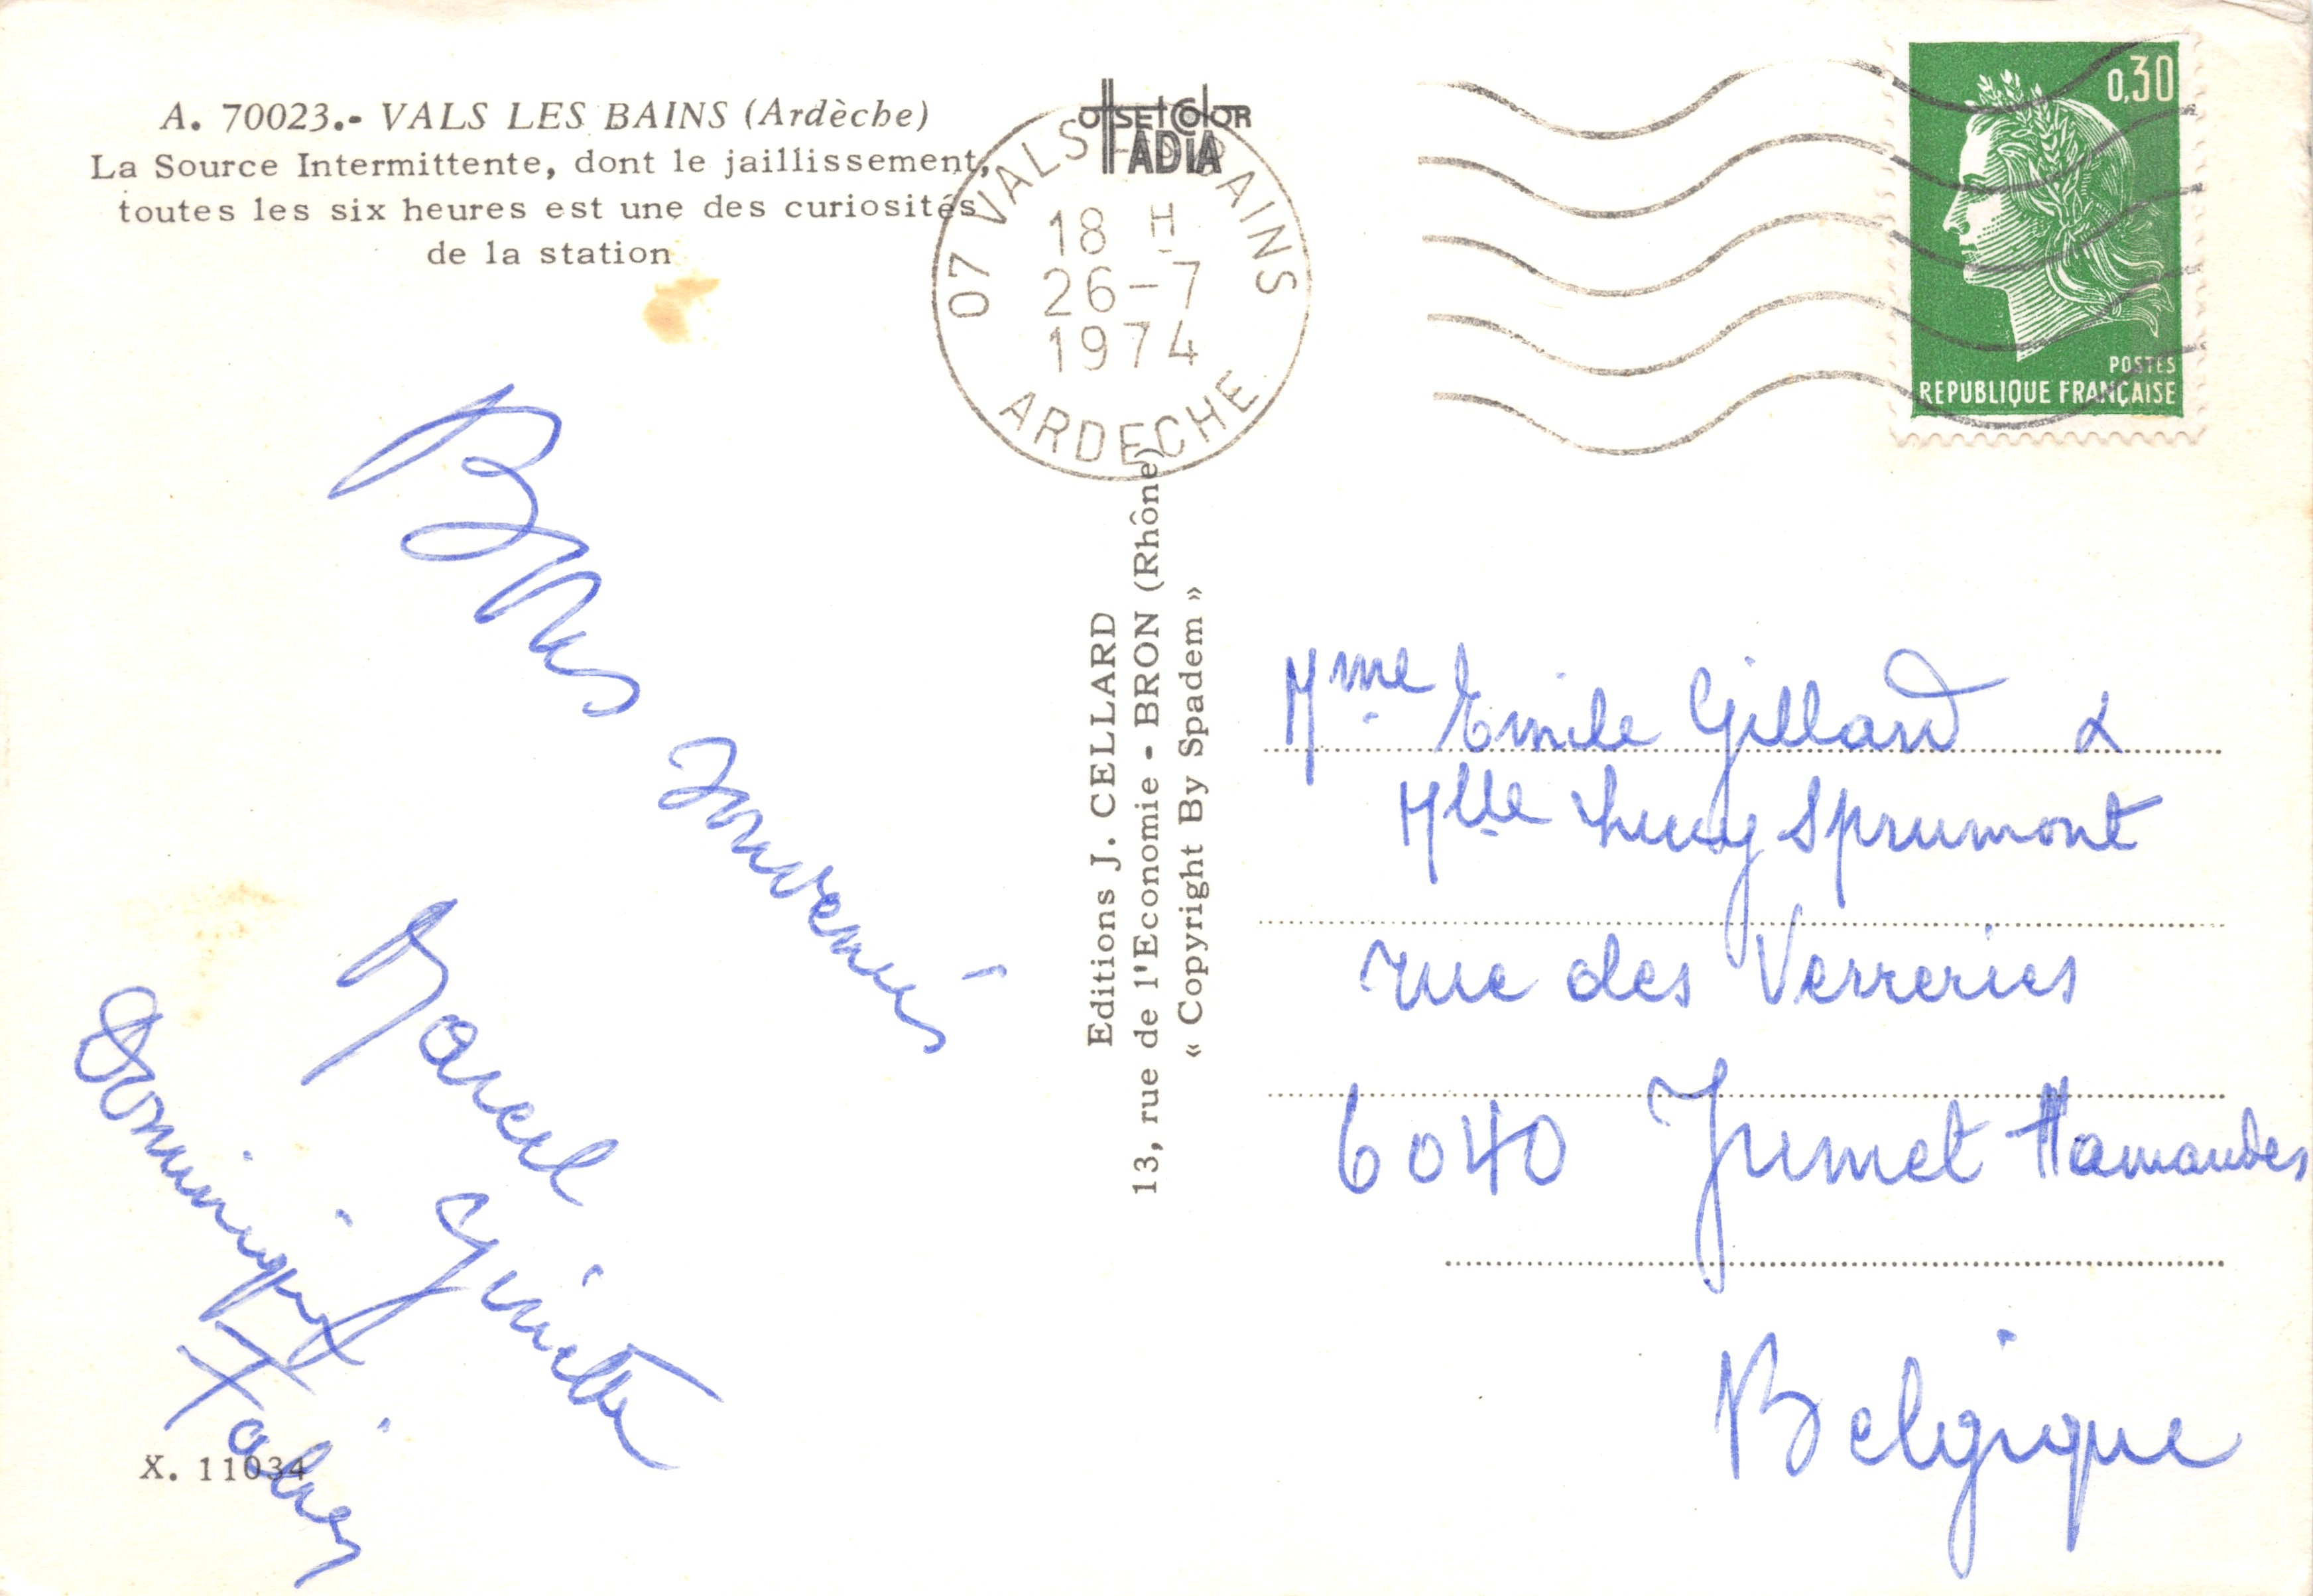 A. 70023.- VALS LES BAINS (Ardèche)
La Source Intermittente, dont le jaillissement,
toutes les six heures est une des curiosités
de la station
OffSET COloR
ADIA
07 VALS LES BAINS
18 H
26-7
1974
ARDECHE
0,30
POSTES
REPUBLIQUE FRANÇAISE
Bons souvenirs
Marcel
Ginette
Dominique
Fabien
X. 11034
Editions J. CELLARD
13, rue de l'Economie - BRON (Rhône)
« Copyright By Spadem »
Mme Emile Gillard &
Mlle Lucy Sprumont
rue des Verreries
6040 Jumet Hamandes
Belgique